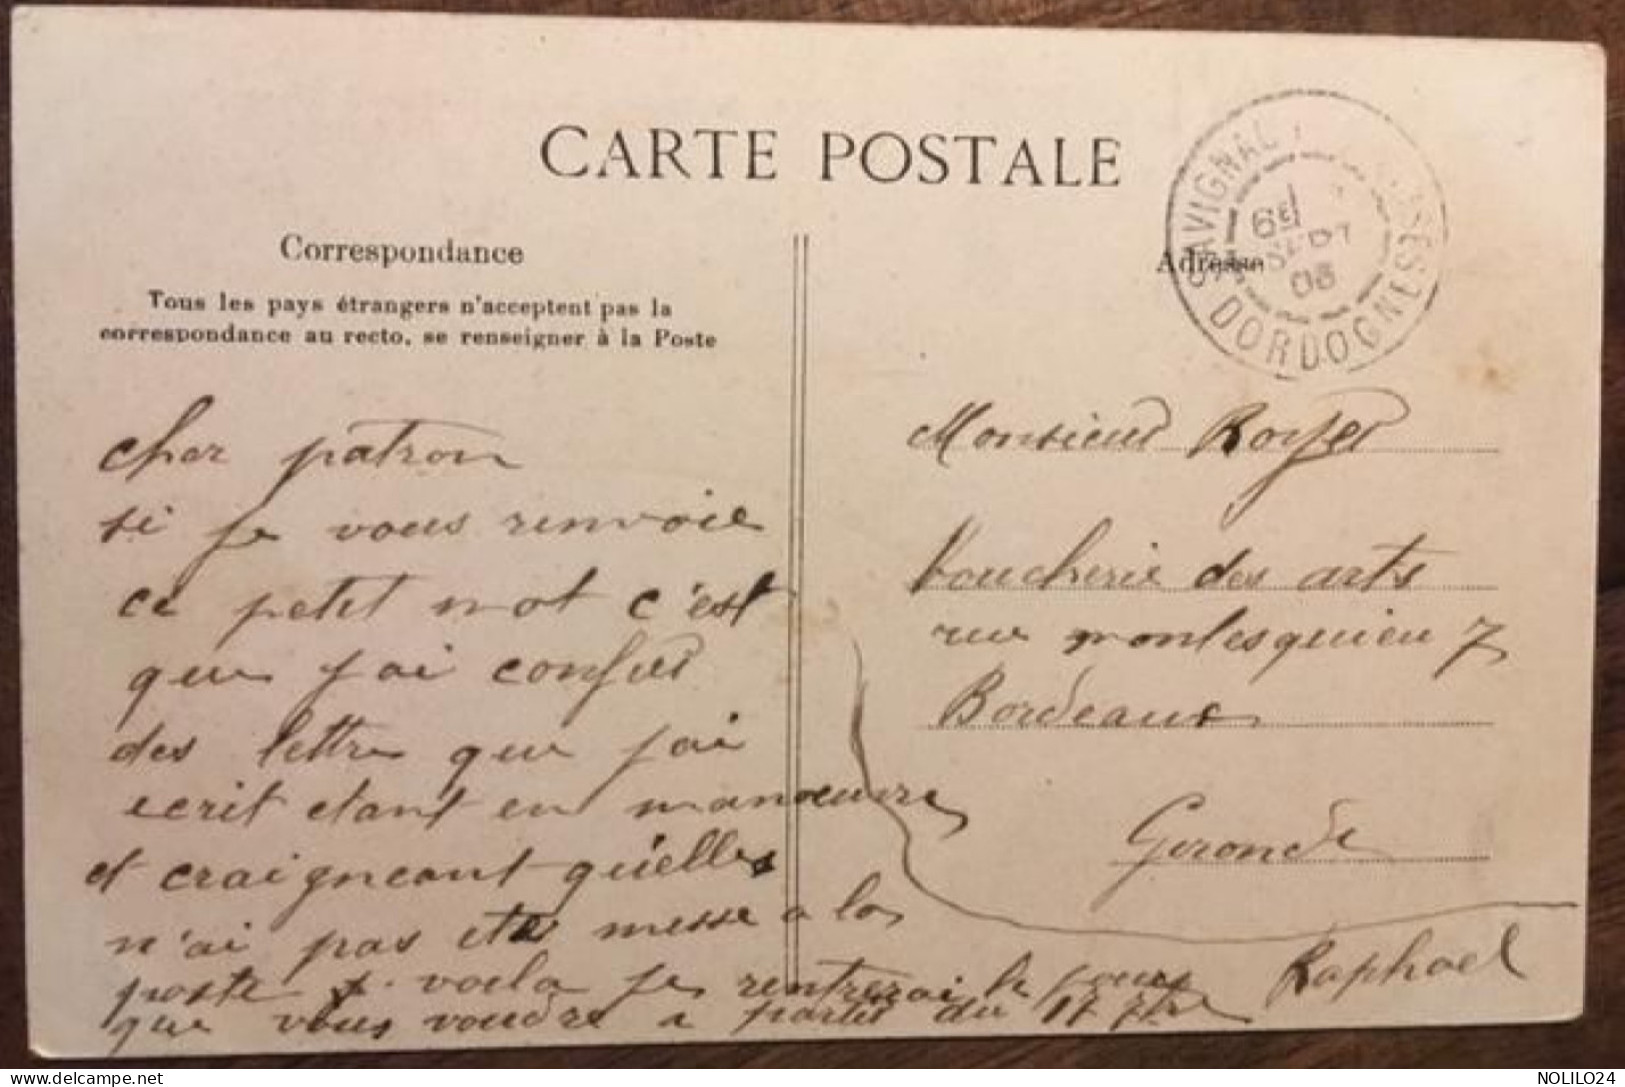 CARTE POSTALE
Correspondance
Tous les pays étrangers n'acceptent pas la
correspondance au recto, se renseigner à la Poste
Adresse
SAVIGNAC
DORDOGNE
6E
SEPT
08
cher patron
si je vous renvoie
ce petit mot c'est
que j'ai confied
des lettre que j'ai
ecrit etant en manoeuvre
et craigneant qu'elles
n'ai pas etes messe a la
poste voila je rentrerai le jour
que vous voudre a partir du 17 7bre
Monsieur Royer
boucherie des arts
rue montesquieu 7
Bordeaux
Gironde
Raphael
NOLILO24